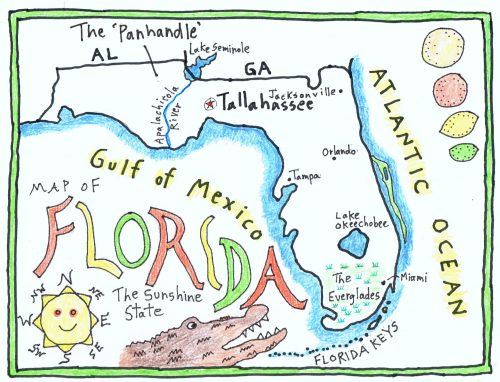 The 'Panhandle'
AL
Lake Seminole
GA
Apalachicola
River
Tallahassee
Jacksonville
ATLANTIC OCEAN
Orlando
Gulf of Mexico
Tampa
MAP OF
FLORIDA
Lake
Okeechobee
The
Everglades
Miami
The Sunshine
State
N
NE
E
SE
S
SW
W
NW
FLORIDA KEYS